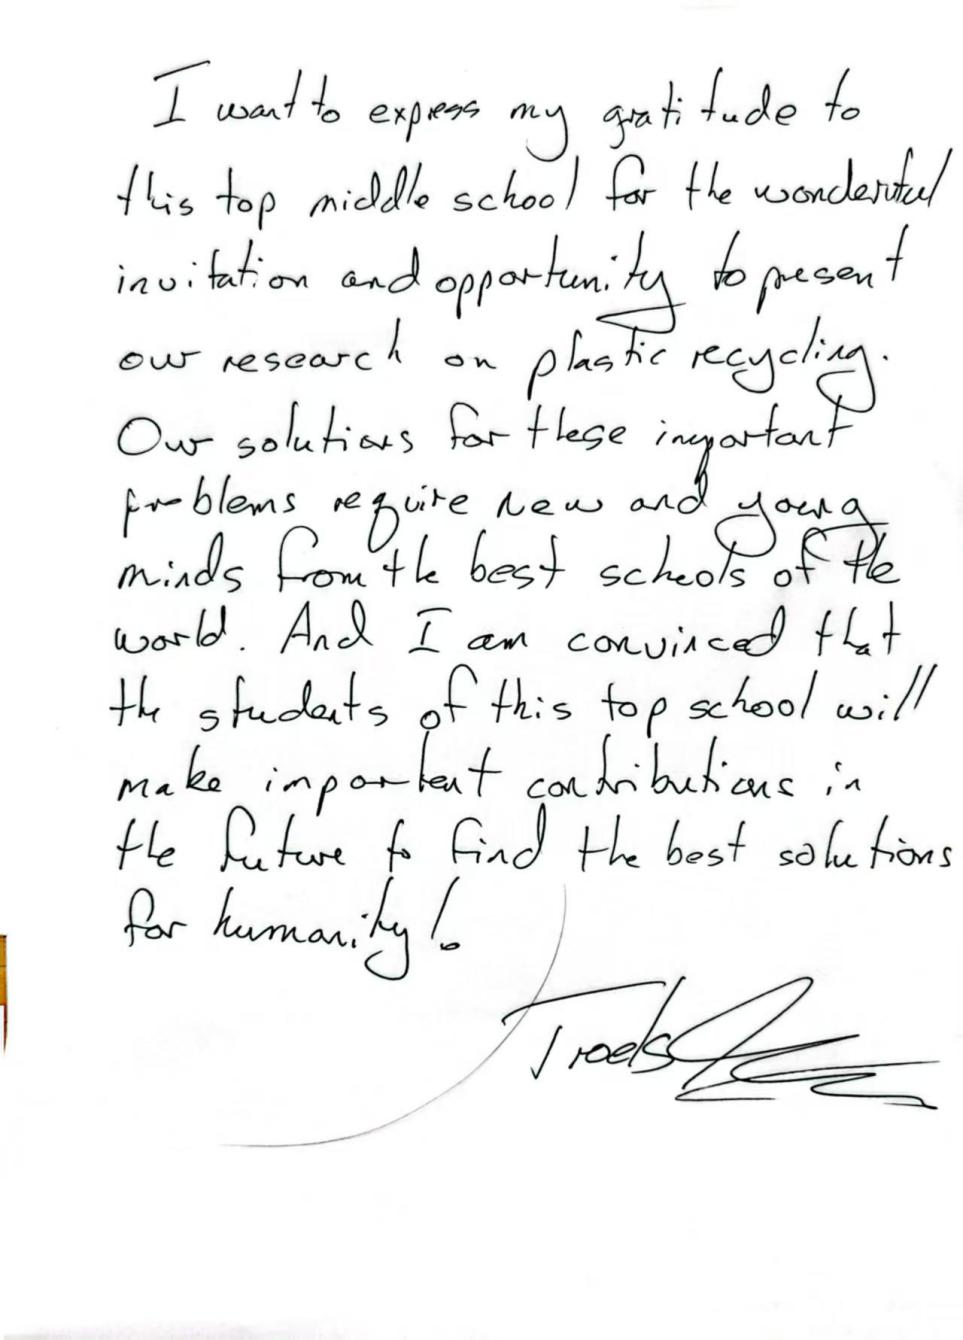 I want to express my gratitude to
this top middle school for the wonderful
invitation and opportunity to present
our research on plastic recycling.
Our solutions for these important
problems require new and young
minds from the best schools of the
world. And I am convinced that
the students of this top school will
make important contributions in
the future to find the best solutions
for humanity!
Troels